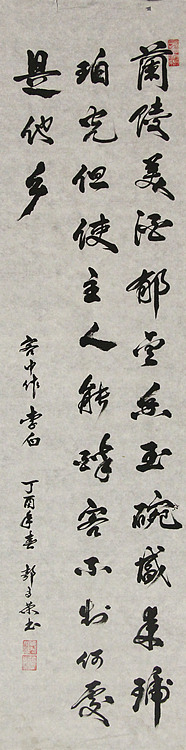 蘭陵美酒郁金香玉碗盛来琥
珀光但使主人能醉客不知何处
是他乡
客中作 李白 丁酉年春 郭子荣书